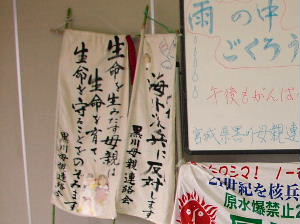 生命を生みだす母親は
生命を育て
生命を守ることをのぞみます
黒川母親連絡会
海外派兵に反対します
黒川母親連絡会
雨の中
ごくろう
午後もがんば
宮城県黒川母親連
ヒロシマ！ノー
世紀を核兵
原水爆禁止